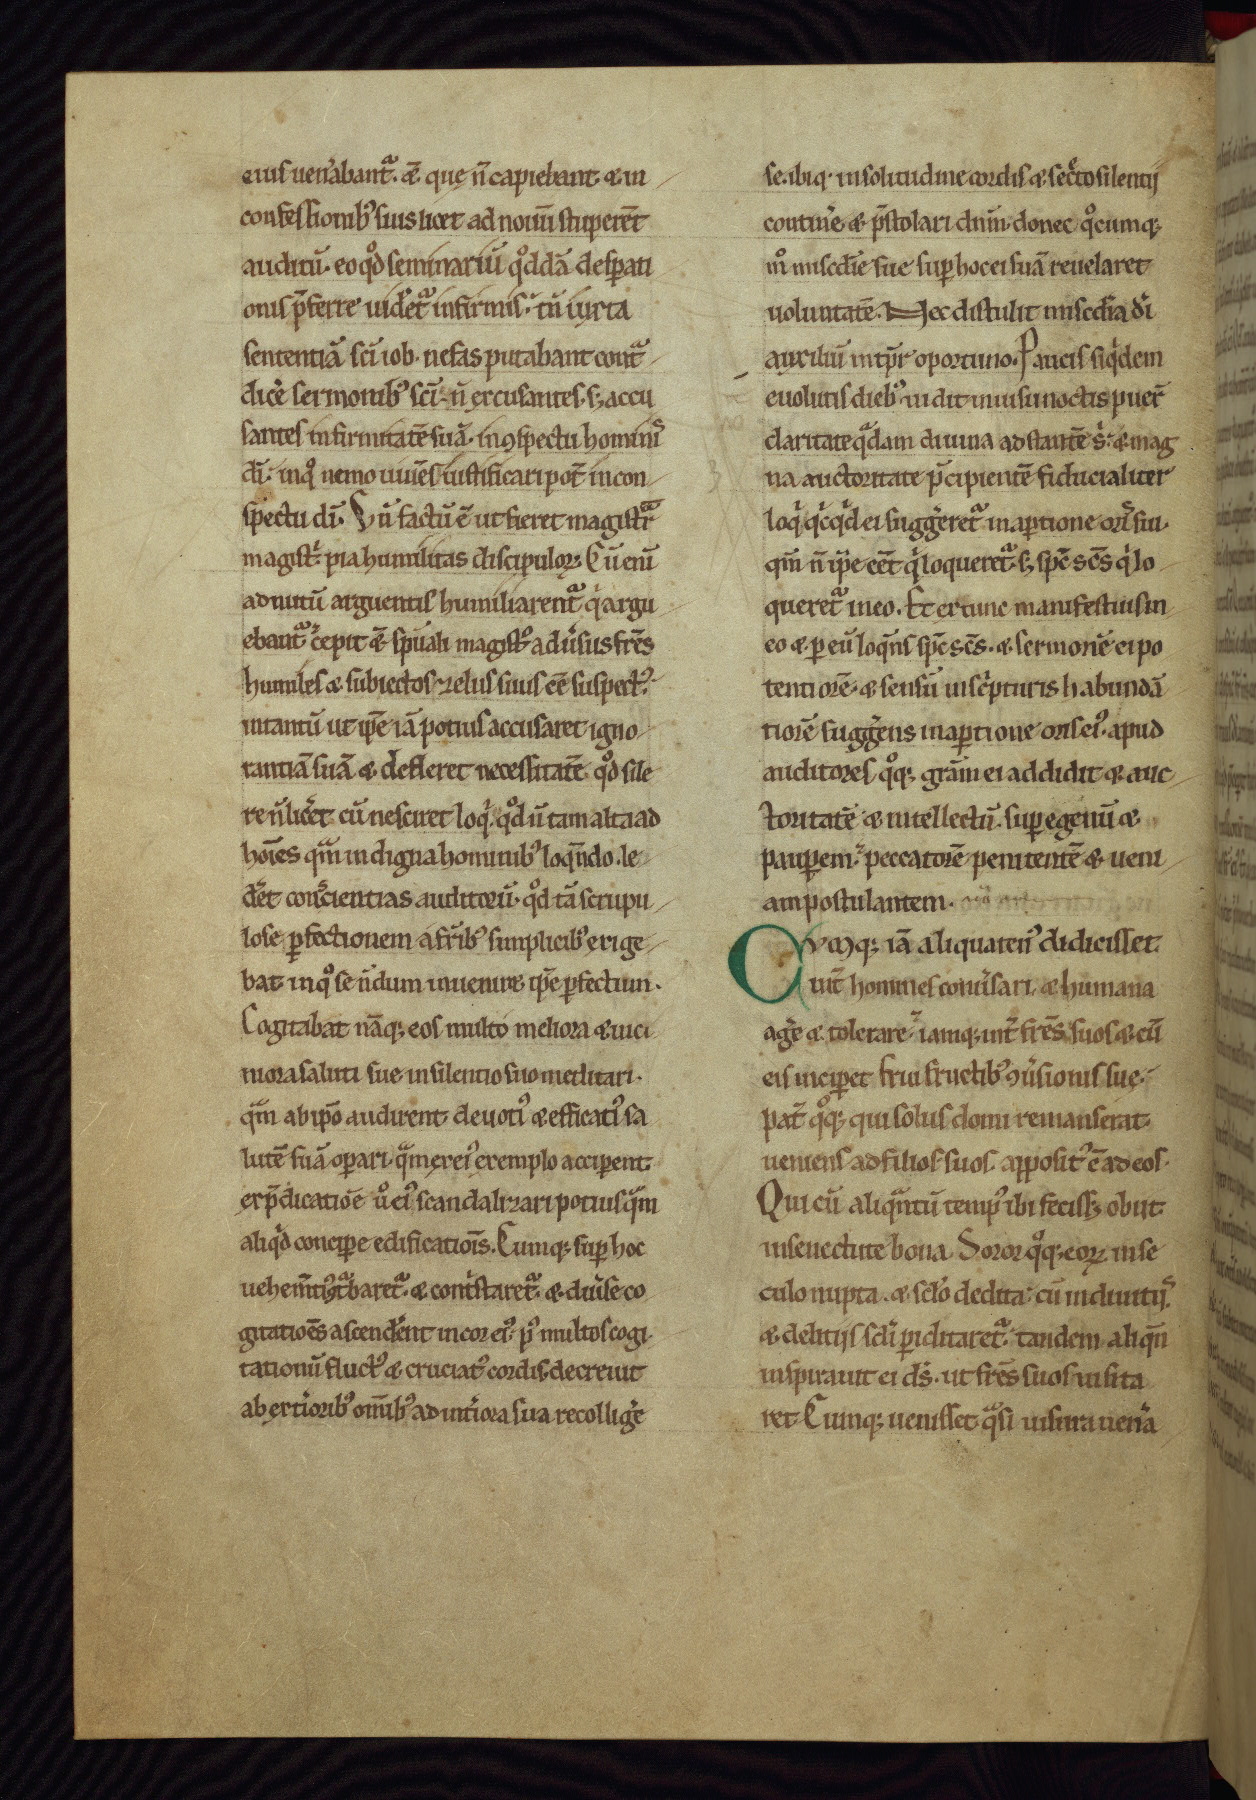 eius uen̾abant᷑. & que n̄ capiebant & in
confessionib; suis licet ad nouū stuperēt
auditū. eo qͦd seminariū qͦddā despati
onis p̄ferre uidet᷑ infirmis: tū iuxta
sententiā sci iob. nefas putabant cont᷑
dic̾e sermonib; sci. n̄ excusantes. s; accu
santes infirmitatē suā. in ꝯspectu homini
dī: in qͦ nemo uiuēs iustificari pot̄ in con
spectu dī. Vn̄ factū ē ut fieret magist᷑
magist̾: pia humilitas discipuloꝝ. Cū enī
ad nutū arguentis humiliarent᷑ qͥ argu
ebant᷑. cepit & sp̄uali magist̾o aduˀsus fr̄es
humiles & subiectos zelus suus eē suspectꝰ.
intantū ut ip̄e iā potius accusaret igno
rantiā suā & defleret necessitatē qͦd sile
re n̄ lic̾et cū nesciret loqͥ. qͦd ū tam alta ad
hoīes qͣm indigna hominib; loqͣndo. le
d̾et consciencias auditorū. qͦd tā scrupu
lose ꝑfectionem a fr̄ib; simplicib; exige
bat in qͦ se n̄dum inuenire ip̄e ꝑfectum.
Cogitabat nāq; eos multo meliora & uici
niora saluti sue in silentio suo meditari.
qͣm ab ip̄o audirent. deuotiꝰ & efficatiꝰ sa
lutē suā oꝑari. qͣm ex eiꝰ exemplo acciꝑent.
ex p̄dicatiōe uͦ eiꝰ scandalizari potius qͣm
aliqͥd conciꝑe edificatiōis. Cumq; suꝑ hoc
uehem̄tiꝰ t̾baret᷑. & contͥstaret᷑. & diu̾se co
gitatiōes ascend̾ent in cor eiꝰ. pꝰ multos cogi
tationū fluctꝰ & cruciatꝰ cordis. decreuit
ab ext̾iorib; om̄ib; ad int̾iora sua recollig̾e
se. ibiq; in solitudine cordis & secͬto silentij
contin̾e & p̄stolari dn̄m. donec qͦcumq;
mͦ miscdīe sue suꝑ hoc ei suā reuelaret
uoluntatē. Nec distulit miscdīa dī
auxiliū in tp̄r oportuno. Paucis siqͥdem
euolutis dieb; uidit in uisu noctis puer̄
claritate qͣdam diuina adstantē s̾: & mag
na auctoritate p̄cipientē fiducialiter
loqͥ qͥcqͥd ei sugg̾eret᷑ in aꝑtione oris sui.
qm̄ n̄ ip̄e eēt qͥ loqueret᷑. s; spc̄ scs̄ qͥ lo
queret᷑ in eo. Et ex tunc manifestius in
eo & ꝑ eū loqͣns spc̄ scs̄. & sermonē ei po
tentiorē. & sensū in scͥpturis habundā
tiorē sugg̾ens in aꝑtione oris eiꝰ. apud
auditores qͦq; gr̄am ei addidit & auc
toritatē & intellectū. suꝑ egenū &
pauꝑem: peccatorē penitentē & ueni
am postulantem.
Cvmq; iā aliquatenꝰ didicisset
int̄ homines conu̾sari. & humana
ag̾e & tolerare: iamq; int̾ fr̄es suos & cū
eis inciꝑet frui fructib; ꝯu̾sionis sue.
pat̄ qͦq; qui solus domi remanserat.
ueniens ad filios suos. appositꝰ ē ad eos.
Qui cū aliqͣntū temp̄ ibi feciss; obiit
in senectute bona. Soror qͦq; eoꝝ in se
culo nupta. & sclo dedita: cū in diuitijs
& delitijs scli ꝑiclitaret᷑. tandem aliqn̄
inspirauit ei ds̄. ut fr̄es suos uisita
ret. Cumq; uenisset qͣsi uisura uen̾a